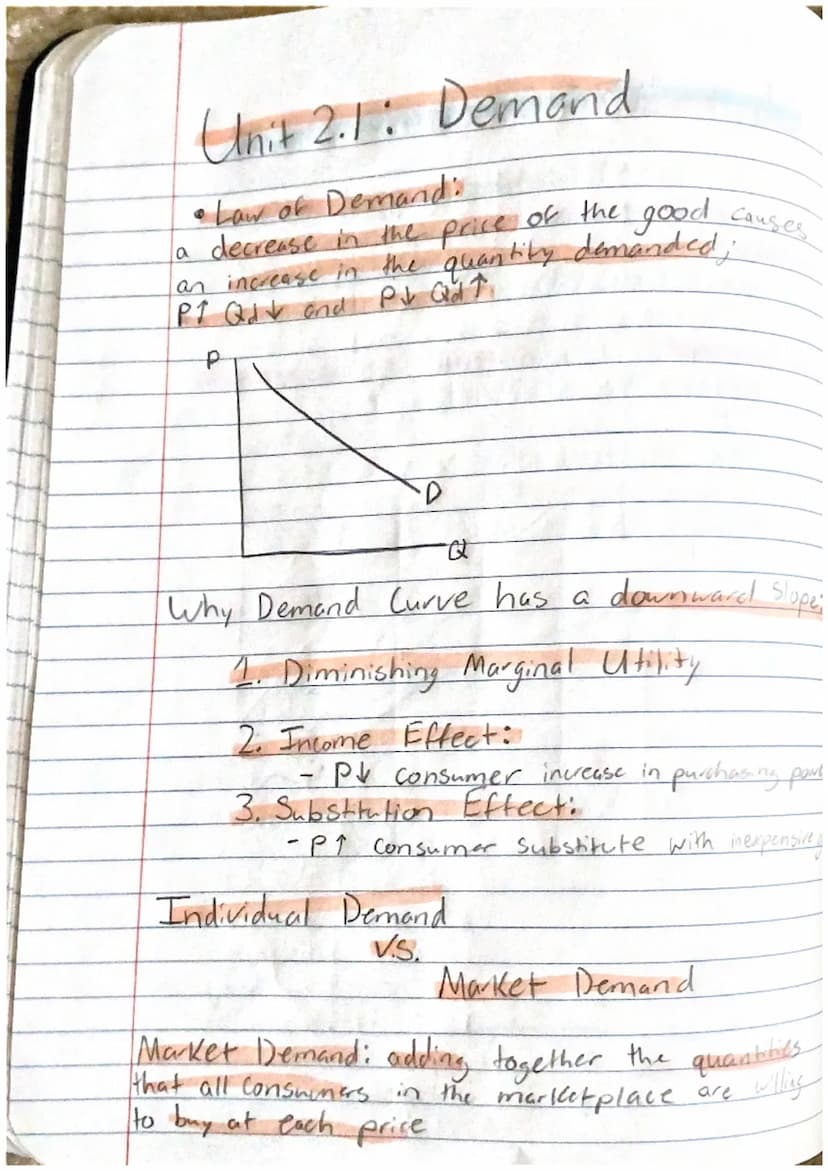 Unit 2.1: Demand
• Law of Demand:
a decrease in the price of the good causes
an increase in the quantity demanded;
P↑ Qd↓ and P↓ Qd↑
P
D
Q
Why Demand Curve has a downward slope:
1. Diminishing Marginal Utility
2. Income Effect:
- P↓ consumer increase in purchasing
3. Substitution Effect:
- P↑ consumer substitute with inexpensive
Individual Demand
V.S.
Market Demand
Market Demand: adding together the quantities
that all consumers in the marketplace are willing
to buy at each price